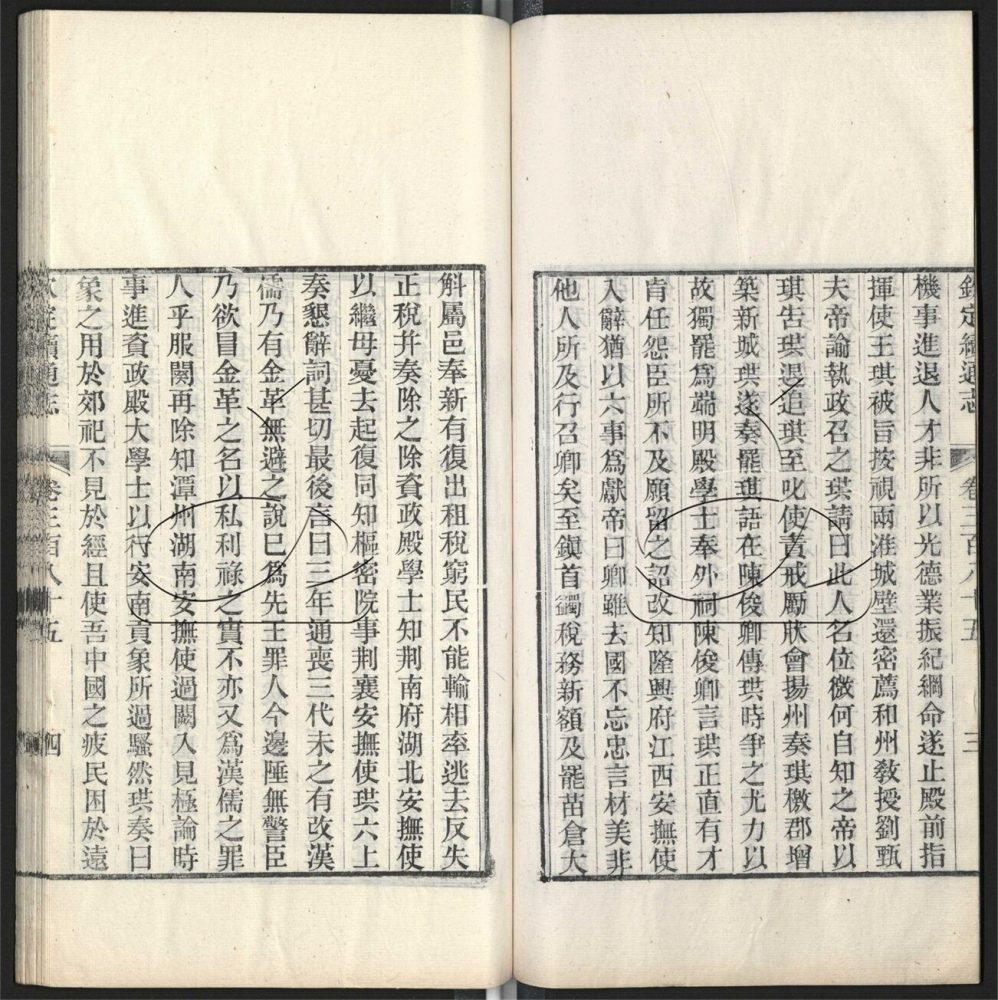 欽定續通志 卷三百八十五 三
機事進退人才非所以光德業振紀綱命遂止殿前指
揮使王琪被旨按視兩淮城壁還密薦和州教授劉甄
夫帝諭執政召之珙請曰此人名位微何自知之帝以
琪告珙退追琪至叱使責戒勵狀會揚州奏琪檄郡增
築新城珙遂奏罷琪語在陳俊卿傳珙時爭之尤力以
故獨罷爲端明殿學士奉外祠陳俊卿言珙正直有才
肯任怨臣所不及願留之詔改知隆興府江西安撫使
入辭猶以六事爲獻帝曰卿雖去國不忘忠言材美非
他人所及行召卿矣至鎭首蠲稅務新額及罷苗倉大
斛屬邑奉新有復出租稅窮民不能輸相率逃去反失
正稅幷奏除之除資政殿學士知荆南府湖北安撫使
以繼母憂去起復同知樞密院事荆襄安撫使珙六上
奏懇辭詞甚切最後言曰三年通喪三代未之有改漢
儒乃有金革無避之說已爲先王罪人今邊陲無警臣
乃欲冒金革之名以私利祿之實不亦又爲漢儒之罪
人乎服闋再除知潭州湖南安撫使過闕入見極論時
事進資政殿大學士以行安南貢象所過騷然珙奏曰
象之用於郊祀不見於經且使吾中國之疲民困於遠
欽定續通志 卷三百八十五 四